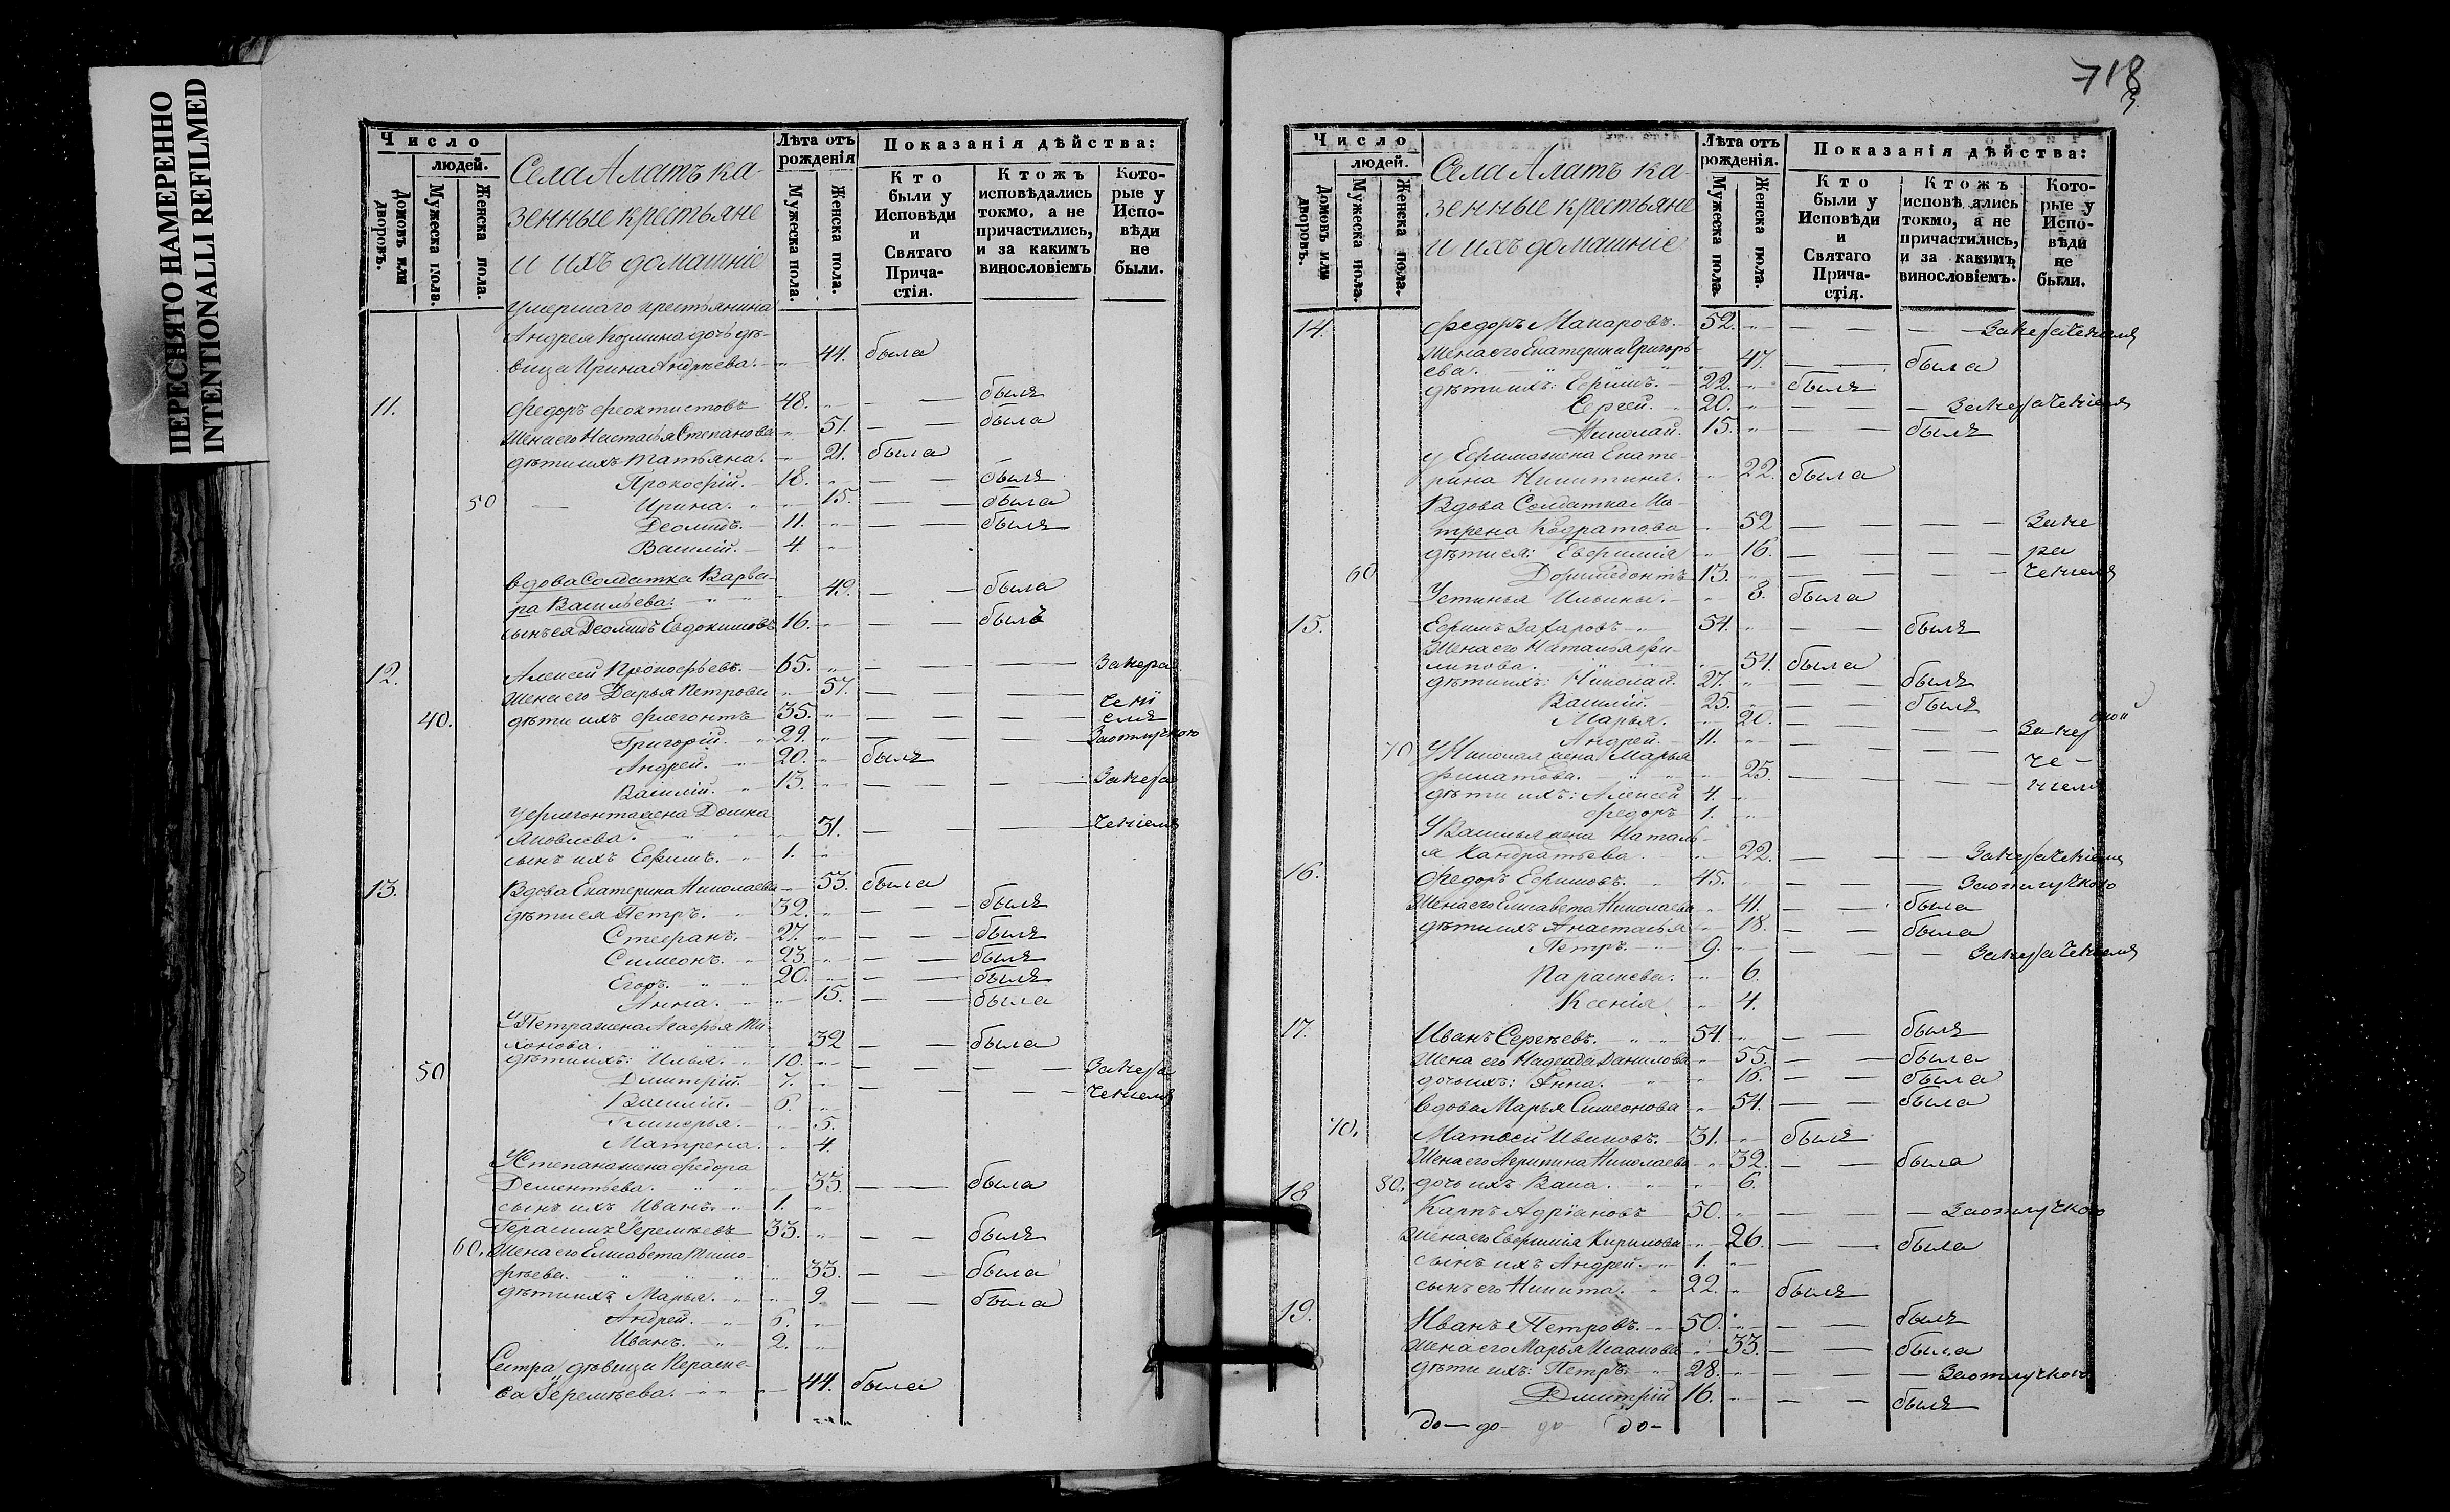 ПЕРЕСНЯТО НАМЕРЕННО
INTENTIONALLI REFILMED
Число
людей.
Домовъ или дворовъ.
Мужеска пола.
Женска пола.
Села Алатъ ка-
зенные крестьяне
и ихъ домашніе
Лѣта отъ рожденія
Мужеска пола.
Женска пола.
Показанія дѣйства:
Кто были у Исповѣди и Святаго Прича-стія.
Ктожъ исповѣдались токмо, а не причастились, и за какимъ винословіемъ
Кото-рые у Испо-вѣди не были.
Умершаго крестьянина
Андрея Козмина дочь дѣ-
вица Ирина Андреева. 44. была
11. Федоръ Феоктистовъ 48. былъ
Жена его Настасья Степанова 51. была
дѣти ихъ Татьяна. 21. была
Прокофій. 18. былъ
50 Ирина. 15. была
Деомидъ. 11. былъ
Василій. 4.
вдова Солдатка Варва-
ра Васильева. 49. была
сынъ ея Деомидъ Евдокимовъ 16. былъ
12. Алексей Прокофьевъ. 65. Занера
Жена его Дарья Петрова 57. чені
40. дѣти ихъ Флегонтъ 35. емъ
Григорій. 29. Заотлучкою
Андрей. 20. былъ
Василій. 13. Занера
У Флегонта жена Домна
Яковлева. 31. ченіемъ
сынъ ихъ Ефимъ. 1.
13. Вдова Екатерина Николаева 53. была
дѣти ея Петръ. 32. былъ
Стефанъ. 27. былъ
Симеонъ. 23. былъ
Егоръ. 20. былъ
Анна. 15. была
У Петра жена Агафья Ти-
хонова. 32 была
дѣти ихъ: Илья. 10.
50 Дмитрій. 7. Занера
Василій. 6. ченіемъ
Гликерья. 5.
Матрена. 4.
У Степана жена Федора
Дементьева. 33. была
сынъ ихъ Иванъ. 1.
Герасимъ Еремѣевъ 33. былъ
60. Жена его Елисавета Тимо-
фѣева. 33. была
дѣти ихъ Марья. 9. была
Андрей. 6.
Иванъ. 2.
Сестра дѣвица Параске-
ва Еремѣева. 44. была
718
Число
людей.
Домовъ или дворовъ.
Мужеска пола.
Женска пола.
Села Алатъ ка-
зенные крестьяне
и ихъ домашніе
Лѣта отъ рожденія.
Мужеска пола
Женска пола.
Показанія дѣйства:
Кто были у Исповѣди и Святаго Прича-стія.
Ктожъ исповѣдались токмо, а не причастились, и за какимъ винословіемъ.
Кото-рые у Испо-вѣди не были.
14. Федоръ Макаровъ. 52. Занераченіемъ
Жена его Екатерина Григорь-
ева. 47. была
дѣти ихъ: Ефимъ. 22. былъ
Сергей. 20. Занераченіемъ
Николай. 15. былъ
У Ефима жена Екате-
рина Никитина. 22. была
Вдова Солдатка Ма-
трена Кодратова 52 Зане
дѣти ея: Евфимія 16. ра
60 Доримедонтъ 13. ченіемъ
Устинья Ильина. 8. была
15. Ефимъ Захаровъ 54. былъ
Жена его Наталья Фи-
липова. 54. была
дѣти ихъ: Николай. 27. былъ
Василій. 25. былъ
Марья. 20. Занер
Андрей. 11.
70 У Николая жена Марья че-
Филатова. 25. ніемъ
дѣти ихъ: Алексей 4.
Федоръ 1.
У Василья жена Наталь-
я Кандратьева. 22. Занераченіемъ
16. Федоръ Ефимовъ. 45. Заотлучкою
Жена его Елисавета Николаева 41. была
дѣти ихъ Анастасья 18. была
Петръ. 9. Занераченіемъ
Параскева. 6.
Ксенія 4.
17. Иванъ Сергѣевъ. 54. былъ
Жена его Надежда Данилова 55. была
дочь ихъ: Анна. 16. была
вдова Марья Симеонова 54. была
70. Матвей Ивановъ. 31. былъ
Жена его Агрипина Николаева 32. была
80. дочь ихъ Васа. 6.
18 Карпъ Адріановъ 50. Заотлучкою
Жена его Евфимія Кирилова 26. была
сынъ ихъ Андрей. 1.
сынъ его Никита. 22. былъ
19. Иванъ Петровъ. 50. былъ
Жена его Марья Исаакова 33. была
дѣти ихъ: Петръ. 28. Заотлучкою
Дмитрій 16. былъ
до- до- до- до-